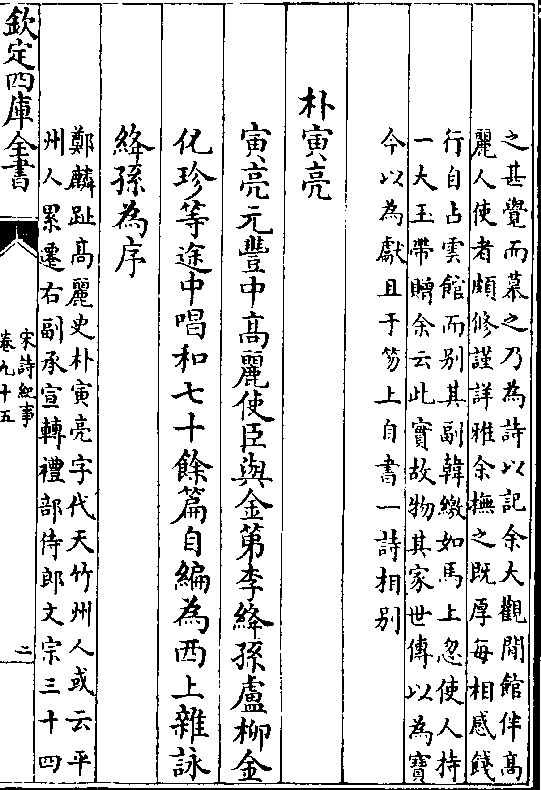 之甚覺而慕之乃為詩以記余大觀間館伴髙
麗人使者頗修謹詳雅余撫之既厚每相感餞
行自占雲館而别其副韓繳如馬上忽使人持
一大玉帶贈余云此寳故物其家世傳以為寳
今以為獻且于笏上自書一詩相别
朴寅亮
寅亮元豐中髙麗使臣與金第李絳孫盧柳金
化珍等途中唱和七十餘篇自編為西上雜詠
絳孫為序
鄭麟趾髙麗史朴寅亮字代天竹州人或云平
州人累遷右副承宣轉禮部侍郎文宗三十四
欽定四庫全書
宋詩紀事
卷九十五
二